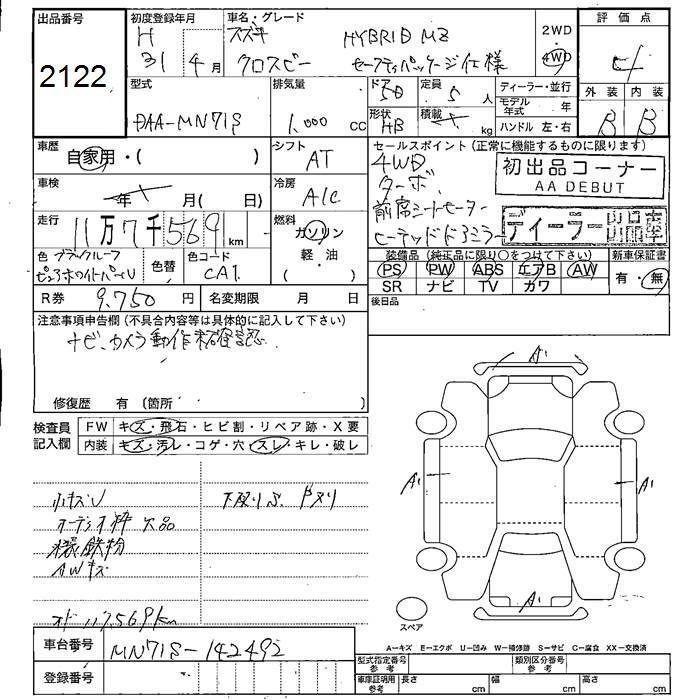 出品番号
2122
初度登録年月
H
31年4月
車名・グレード
スズキ HYBRID MZ
クロスビー セーフティパッケージ仕様
2WD
4WD
評価点
4
外装 内装
B B
型式
DAA-MN71S
排気量
1,000 cc
ドア 5D
形状 HB
定員 5 人
積載 kg
ディーラー・並行
モデル年式 年
ハンドル 左・右
車歴
自家用・( )
シフト
AT
車検
年 月( 日)
冷房
A/C
走行
11万7千569 km
燃料
ガソリン
軽・油
( )
色 ブラックルーフ
ピュアホワイトパール
色替
色コード
CA1
R券 9,750 円
名変期限 月 日
セールスポイント(正常に機能するものに限ります)
4WD
ターボ
前席シートヒーター
ヒーテッドドアミラー
初出品コーナー
AA DEBUT
ディーラー出品車
装備品(純正品に限り○をつけて下さい)
PS PW ABS エアB AW
SR ナビ TV カワ
新車保証書
有・無
後日品
注意事項申告欄(不具合内容等は具体的に記入して下さい)
ナビ、カメラ動作未確認
修復歴 有(箇所
検査員
記入欄
FW キズ・飛石・ヒビ割・リペア跡・X要
内装 キズ・汚レ・コゲ・穴・スレ・キレ・破レ
小キズU
オーディオ枠欠品
鉄粉
AWキズ
オド117,569km
車台番号 MN71S-142492
登録番号
A1
A1
A1
A1
スペア
A-キズ E-エクボ U-凹み W-補修跡 S-サビ C-腐食 XX-交換済
型式指定番号
参考
類別区分番号
参考
車庫証明用
参考
長さ cm 幅 cm 高さ cm